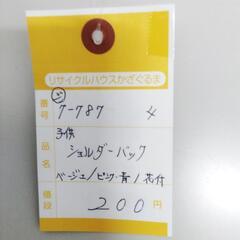 リサイクルハウスかざぐるま
番号 7-787 4
品名 子供
ショルダーバック
ベージュ/ピンク・青/花付
値段 200円